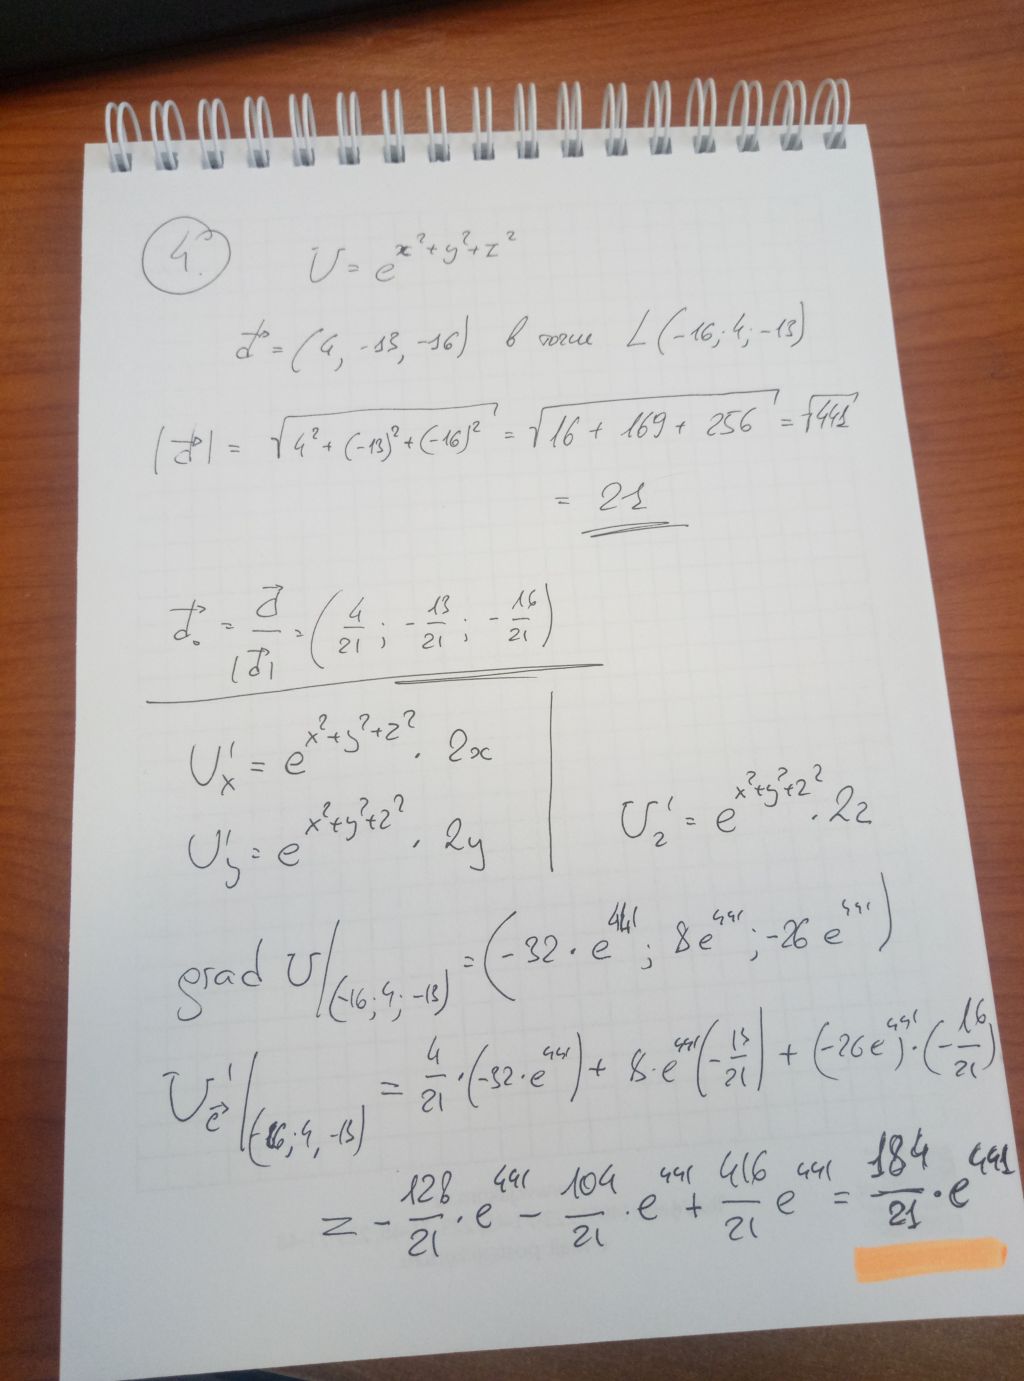 4.
U = e^{x²+y²+z²}
d⃗ = (4, -13, -16) в точке L(-16; 4; -13)
|d⃗| = √(4² + (-13)² + (-16)²) = √(16 + 169 + 256) = √441
= 21
d⃗₀ = d⃗/|d⃗| = (4/21; -13/21; -16/21)
U'x = e^{x²+y²+z²} · 2x
U'y = e^{x²+y²+z²} · 2y
U'z = e^{x²+y²+z²} · 2z
grad U|(-16; 4; -13) = (-32 · e^{441}; 8e^{441}; -26 e^{441})
U'e⃗|(-16; 4, -13) = 4/21 · (-32 · e^{441}) + 8 · e^{441}(-13/21) + (-26e^{441}) · (-16/21)
= -128/21 · e^{441} - 104/21 · e^{441} + 416/21 e^{441} = 184/21 · e^{441}